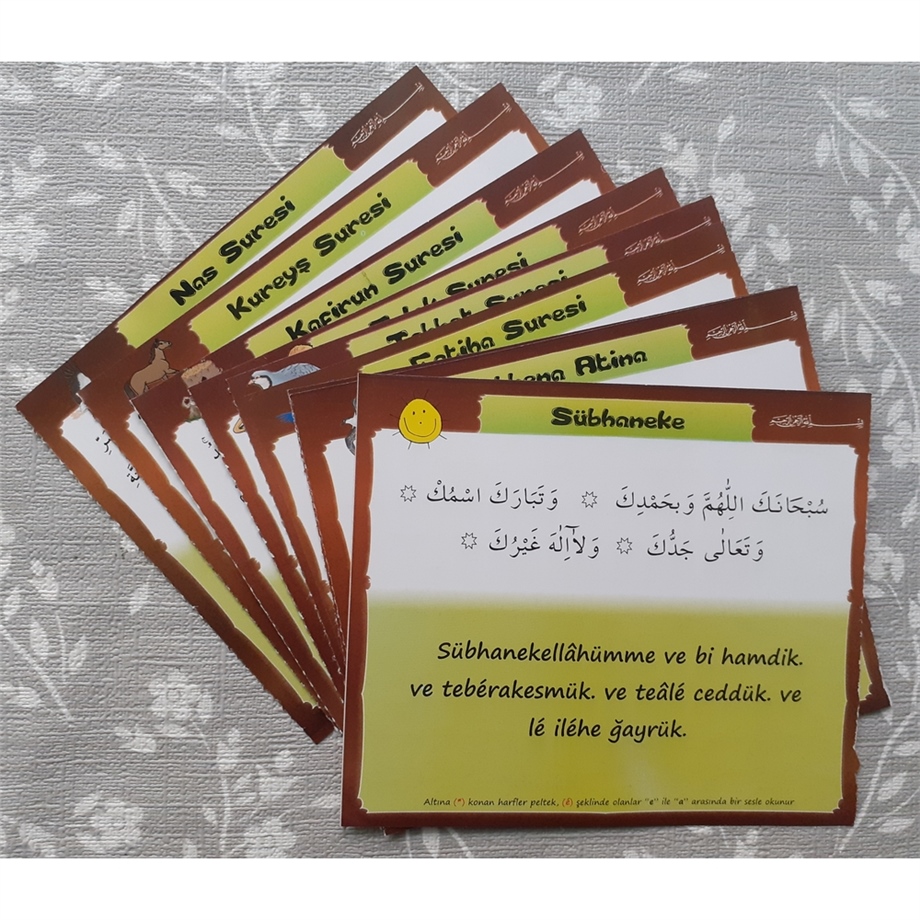 Nas Suresi
Kureyş Suresi
Kafirun Suresi
Suresi
Suresi
Fatiha Suresi
Atina
Sübhaneke
سُبْحَانَكَ اللّٰهُمَّ وَبِحَمْدِكَ ۞ وَتَبَارَكَ اسْمُكَ ۞
وَتَعَالٰى جَدُّكَ ۞ وَلَآاِلٰهَ غَيْرُكَ ۞
Sübhanekellâhümme ve bi hamdik.
ve tebérakesmük. ve teâlé ceddük. ve
lé iléhe ğayrük.
Altına (*) konan harfler peltek, (é) şeklinde olanlar "e" ile "a" arasında bir sesle okunur